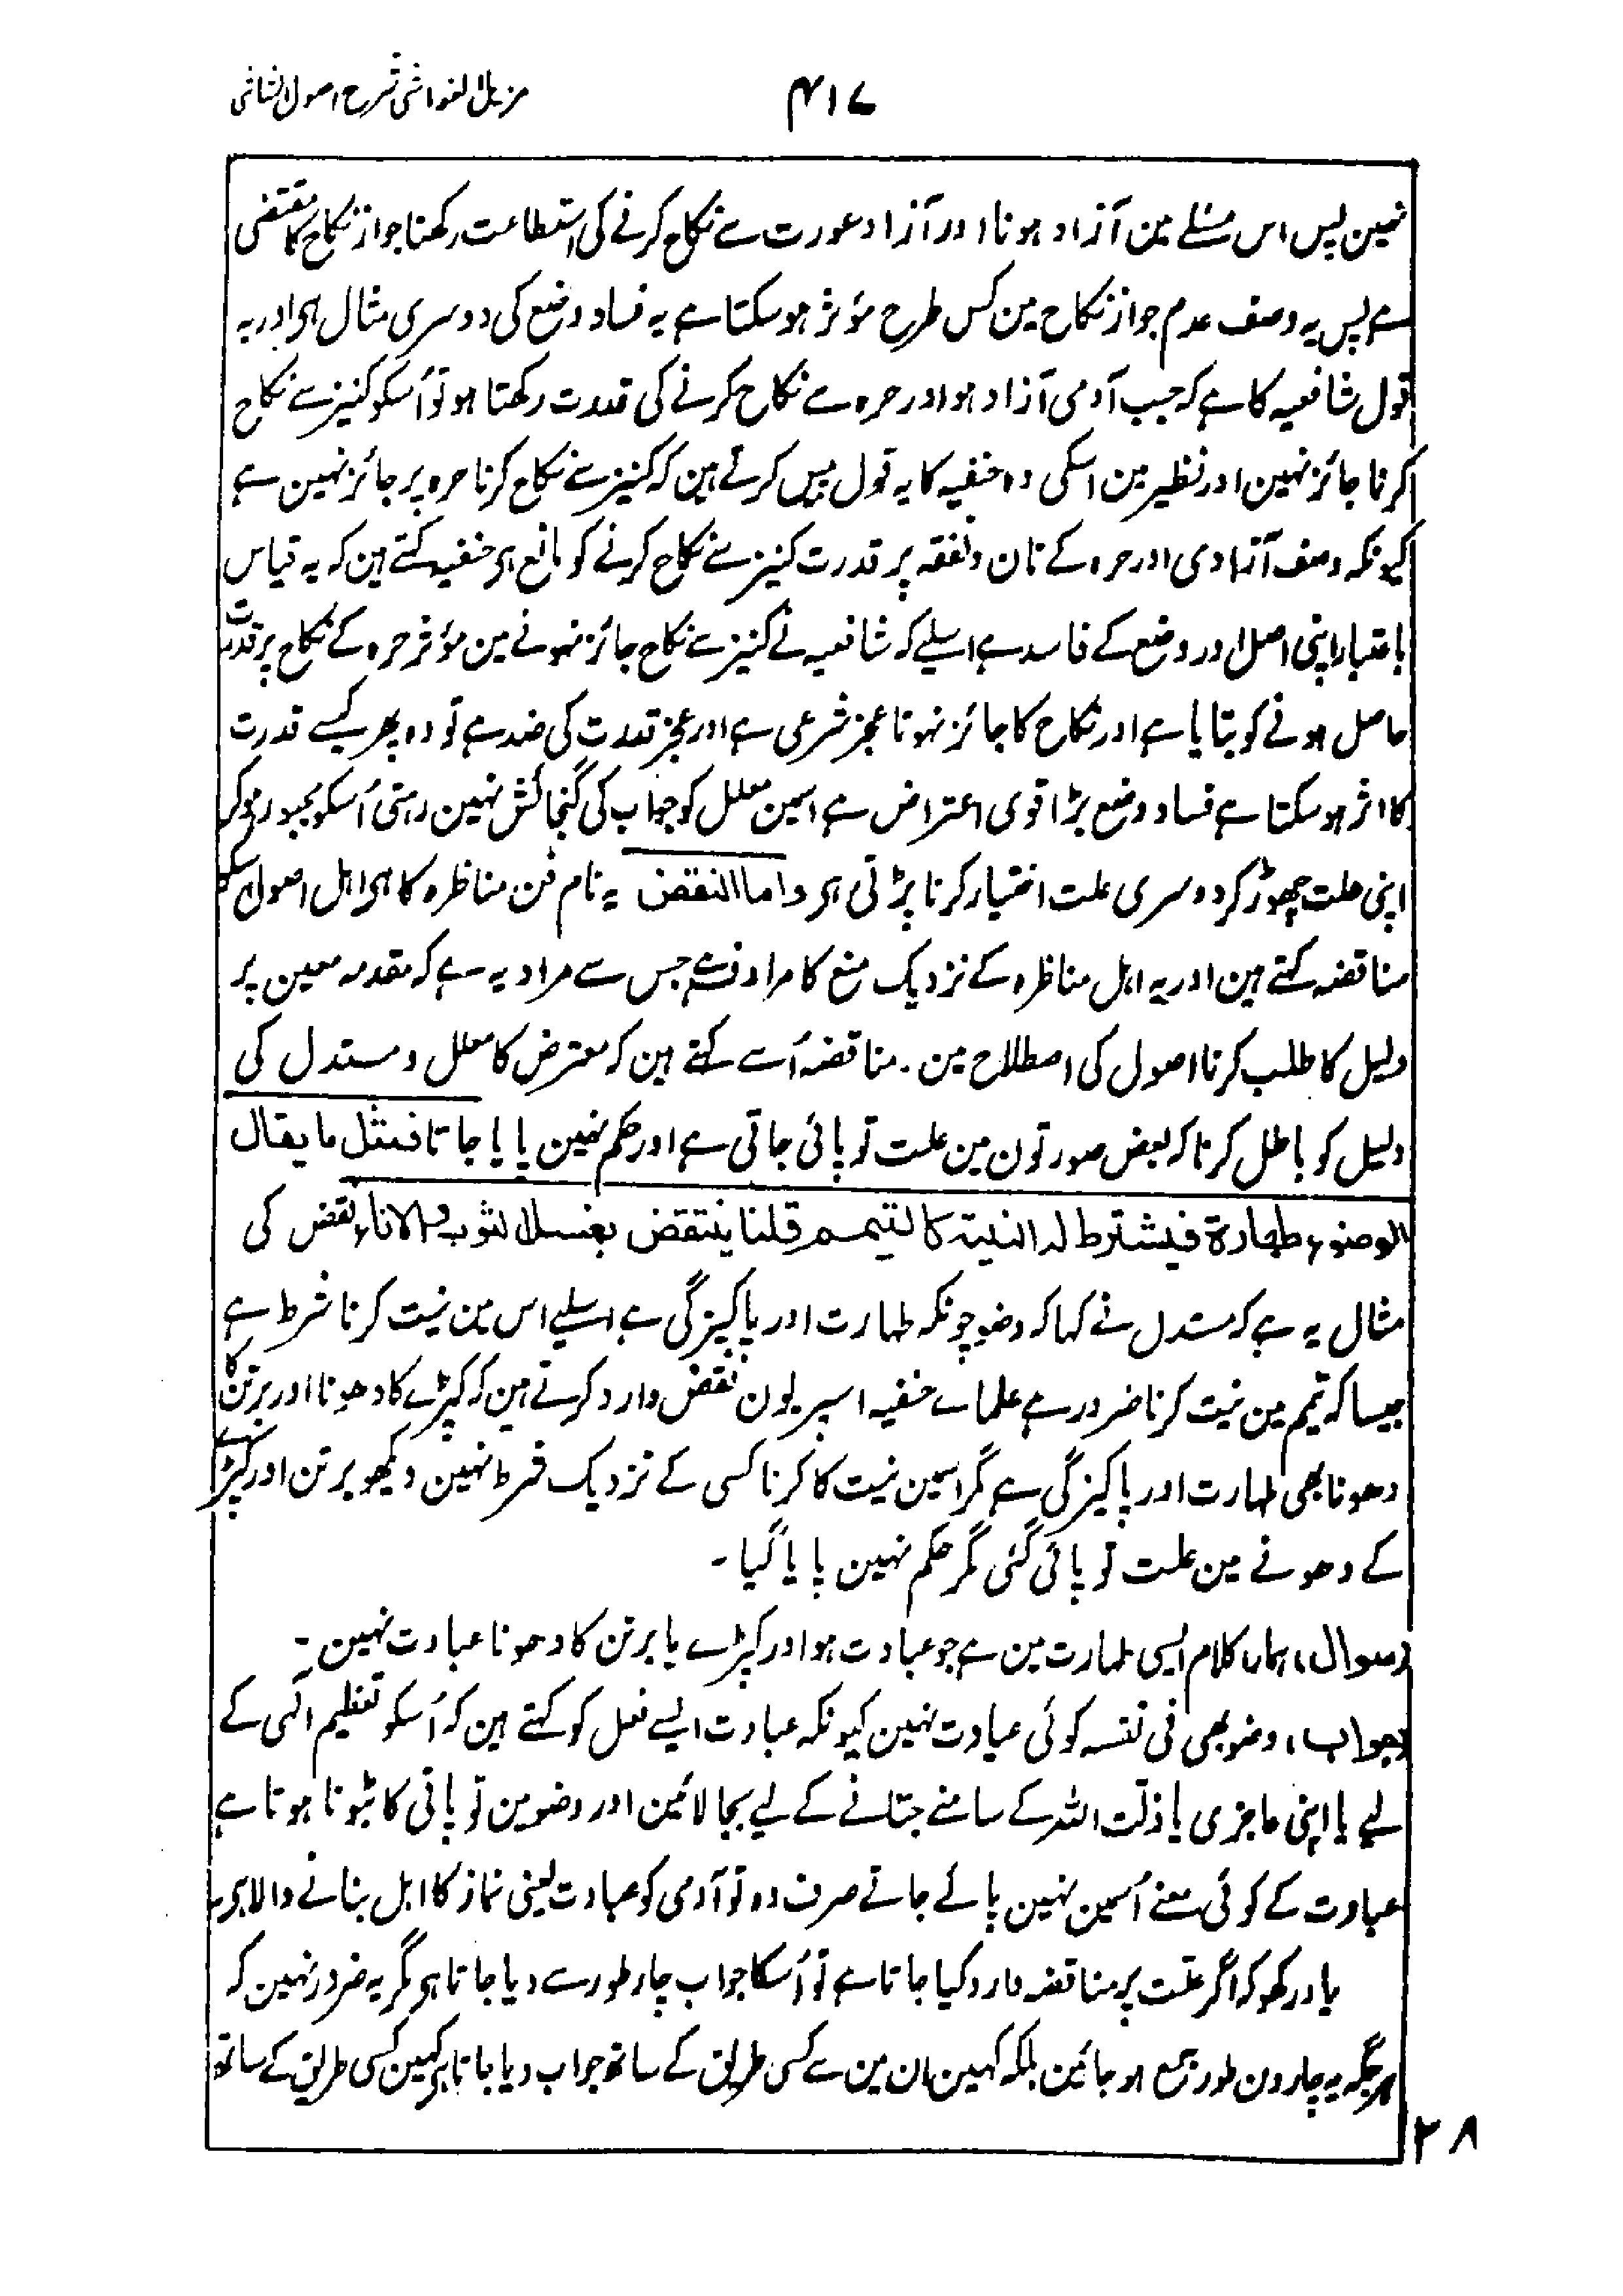 مزیل الغواشی شرح اصول الشاشی
۴۱۷
نہین پس اس مسئلے مین آزاد ہونا اور آزاد عورت سے نکاح کرنے کی استطاعت رکھنا جواز نکاح کا مقتضی
ہے پس یہ وصف عدم جواز نکاح مین کس طرح مؤثر ہو سکتا ہے یہ فساد وضع کی دوسری مثال ہی اور یہ
قول شافعیہ کا ہے کہ جب آدمی آزاد ہو اور حرہ سے نکاح کرنے کی قدرت رکھتا ہو تو اُسکو کنیز سے نکاح
کرنا جائز نہین اور نظیر مین اسکی وہ حنفیہ کا یہ قول پیس کرتے ہین کہ کنیز سے نکاح کرنا حرہ پر جائز نہین ہے
کیونکہ وصف آزادی اور حرہ کے نان و نفقہ پر قدرت کنیز سے نکاح کرنے کو مانع ہی حنفیہ کہتے ہین کہ یہ قیاس
باعتبار اپنی اصل اور وضع کے فاسد ہے اسلیے کہ شافعیہ نے کنیز سے نکاح جائز نہونے مین مؤثر حرہ کے نکاح پر قدرت
حاصل ہونے کو بتایا ہے اور نکاح کا جائز نہونا عجز شرعی ہے اور عجز قدرت کی ضد ہے تو وہ پھر کیسے قدرت
کا اثر ہو سکتا ہے فساد وضع بڑا قوی اعتراض ہے اسمین معلل کو جواب کی گنجائش نہین رہتی اُسکو مجبور ہو کر
اپنی علت چھوڑ کر دوسری علت اختیار کرنا پڑتی ہی واما النقض یہ نام فن مناظرہ کا ہی اہل اصول اسکو
مناقضہ کہتے ہین اور یہ اہل مناظرہ کے نزدیک منع کا مرادف ہے جس سے مراد یہ ہے کہ مقدمہ معین پر
دلیل کا طلب کرنا اصول کی اصطلاح مین۔ مناقضہ اُسے کہتے ہین کہ معترض کا معلل و مستدل کی
دلیل کو باطل کرنا کہ بعض صورتون مین علت تو پائی جاتی ہے اور حکم نہین پایا جاتا فمثل ما یقال
الوضوء طہارۃ فیشترط لہ النیۃ کالتیمم قلنا ینتقض بغسل الثوب والاناء نقض کی
مثال یہ ہے کہ مستدل نے کہا کہ وضو چونکہ طہارت اور پاکیزگی ہے اسلیے اس مین نیت کرنا شرط ہے
جیسا کہ تیمم مین نیت کرنا ضرور ہے علماے حنفیہ اسپر یون نقض وارد کرتے ہین کہ کپڑے کا دھونا اور برتن کا
دھونا بھی طہارت اور پاکیزگی ہے مگر اسمین نیت کا کرنا کسی کے نزدیک شرط نہین دیکھو برتن اور کپڑے
کے دھونے مین علت تو پائی گئی مگر حکم نہین پایا گیا۔
(سوال) ہمارا کلام ایسی طہارت مین ہے جو عبادت ہو اور کپڑے یا برتن کا دھونا عبادت نہین۔
(جواب) وضو بھی فی نفسہ کوئی عبادت نہین کیونکہ عبادت ایسے فعل کو کہتے ہین کہ اُسکو تعظیم الٰہی کے
لیے یا اپنی عاجزی یا ذلت اللہ کے سامنے جتانے کے لیے بجا لائین اور وضو مین تو پانی کا بٹونا ہوتا ہے
عبادت کے کوئی معنے اُسمین نہین پائے جاتے صرف وہ تو آدمی کو عبادت یعنی نماز کا اہل بنانے والا ہی
یاد رکھو کہ اگر علت پر مناقضہ وارد کیا جاتا ہے تو اُسکا جواب چار طور سے دیا جاتا ہی مگر یہ ضرور نہین کہ
ہر جگہ یہ چارون طور جمع ہو جائین بلکہ کہین ان مین سے کسی طریق کے ساتھ جواب دیا جاتا ہی کہین کسی طریق کے ساتھ
۲۸